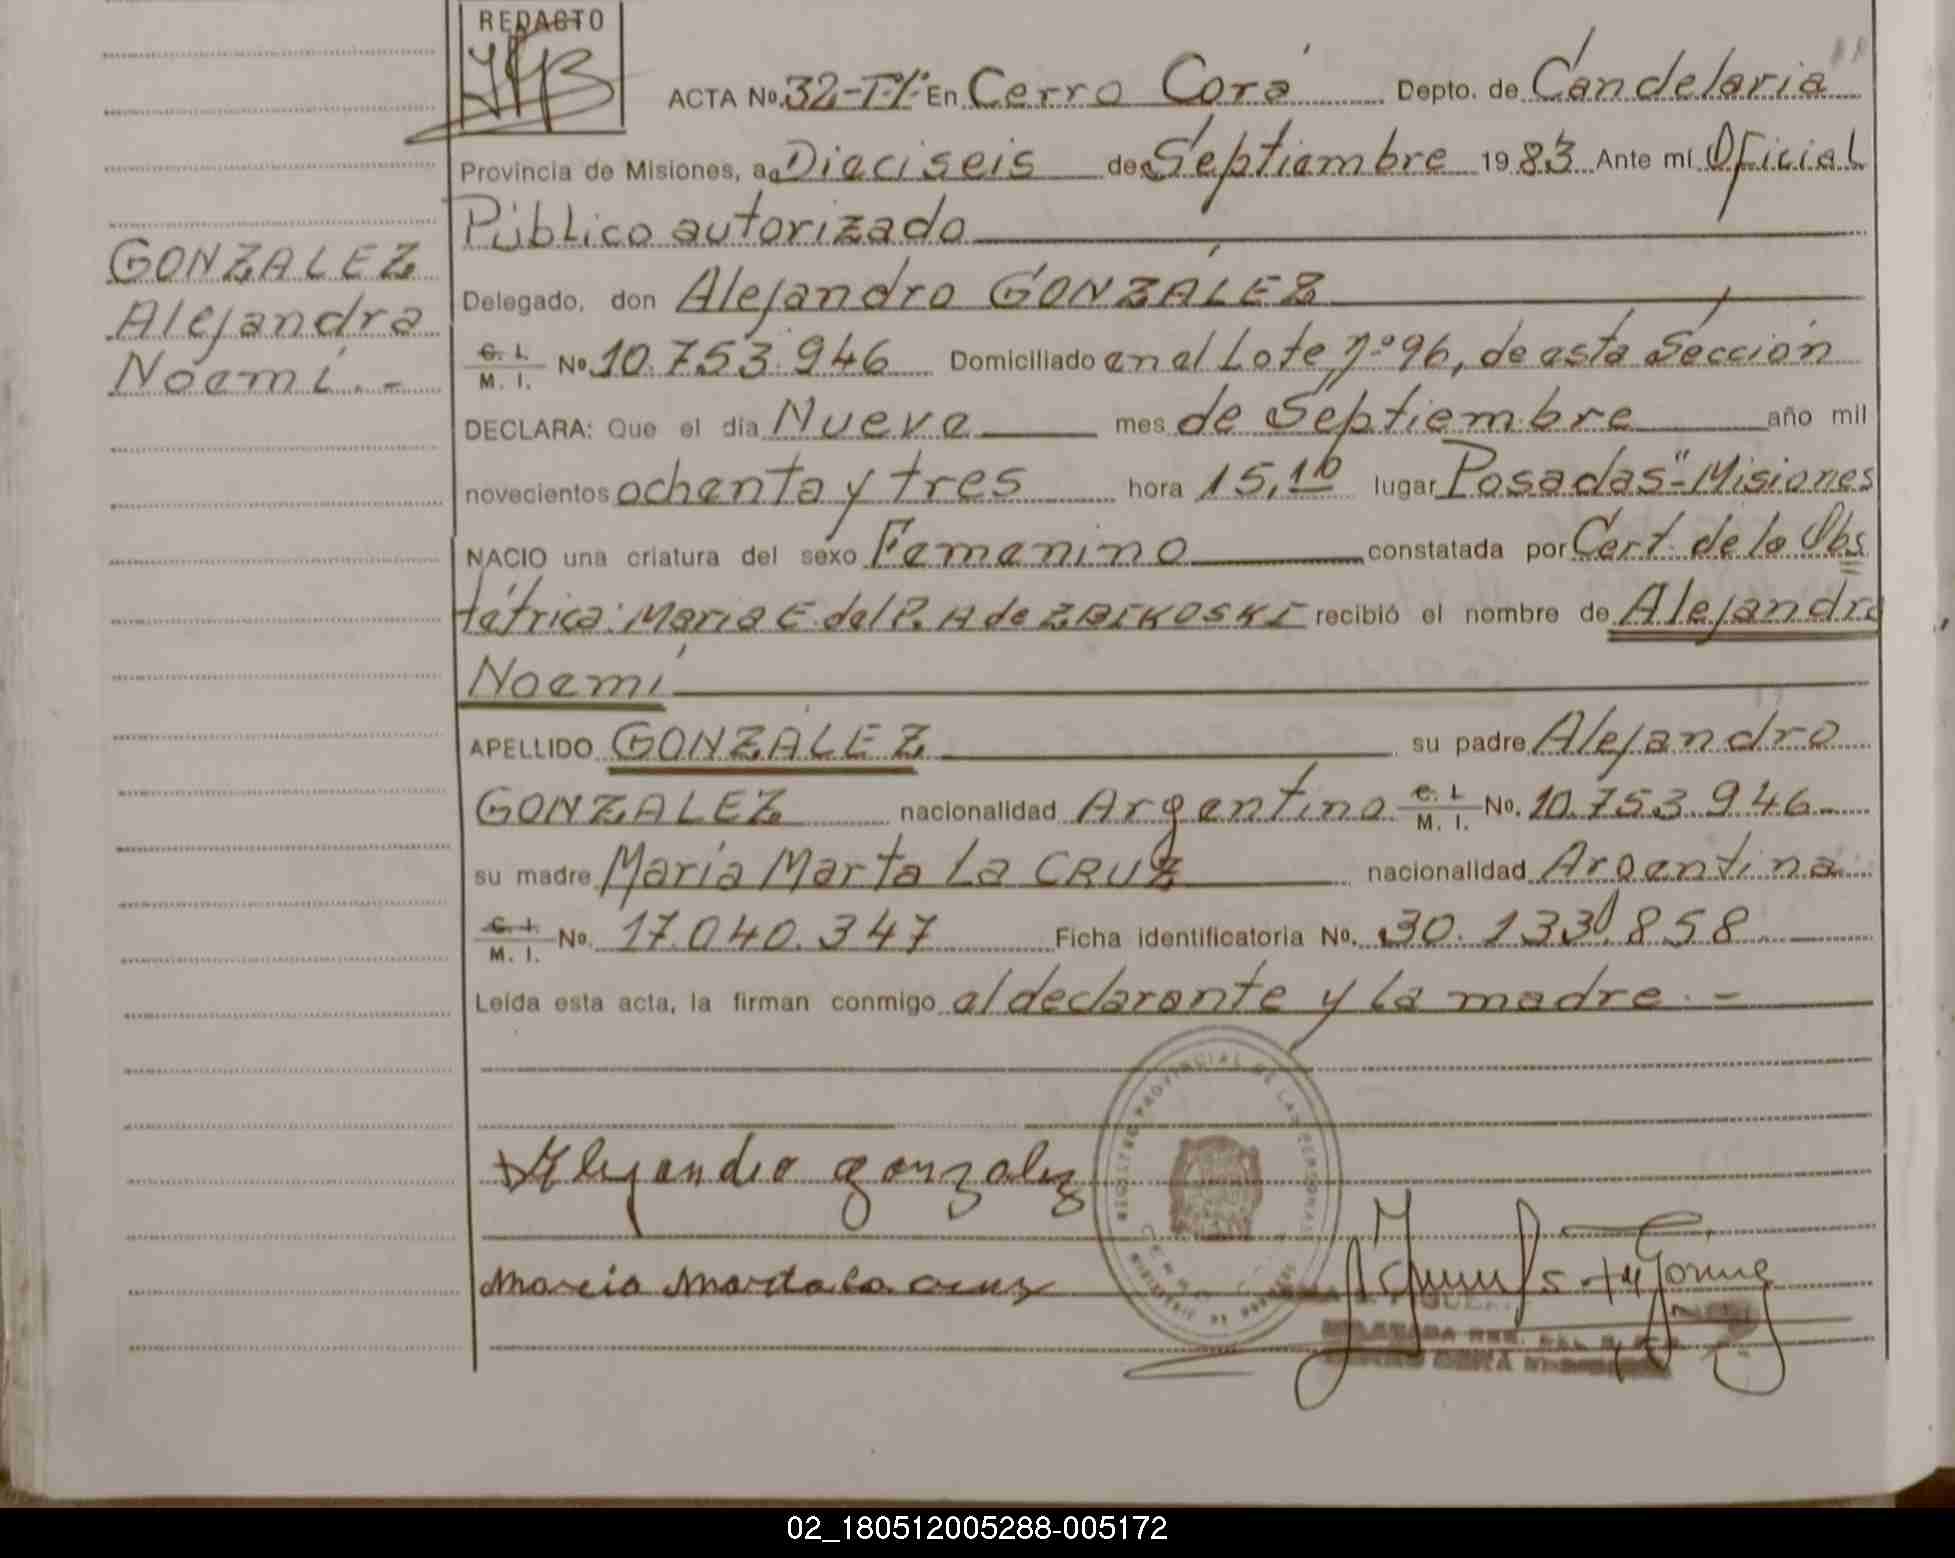 REDACTO
ACTA No. 32-Tº1º- En Cerro Corá Depto. de Candelaria
Provincia de Misiones, a Dieciseis de Septiembre 1983 Ante mí Oficial
Público autorizado
Delegado, don Alejandro GONZÁLEZ
C. I. M. I. No 10.753.946 Domiciliado en el Lote nº 96, de esta Sección
DECLARA: Que el día Nueve mes de Septiembre año mil
novecientos ochenta y tres hora 15,10 lugar Posadas-Misiones
NACIO una criatura del sexo Femenino constatada por Cert. de la Obs
tétrica: Maria E. del P. A de ZBIKOSKI recibió el nombre de Alejandra
Noemí
APELLIDO GONZÁLEZ su padre Alejandro
GONZALEZ nacionalidad Argentino C. I. M. I. No. 10.753.946
su madre María Marta La CRUZ nacionalidad Argentina
C. I. M. I. No. 17.040.347 Ficha identificatoria No. 30.133.858
Leída esta acta, la firman conmigo el declarante y la madre.-
GONZALEZ
Alejandra
Noemí.-
REGISTRO PROVINCIAL DE LAS PERSONAS
Alejandro gonzalez
Maria Marta la cruz
02_180512005288-005172